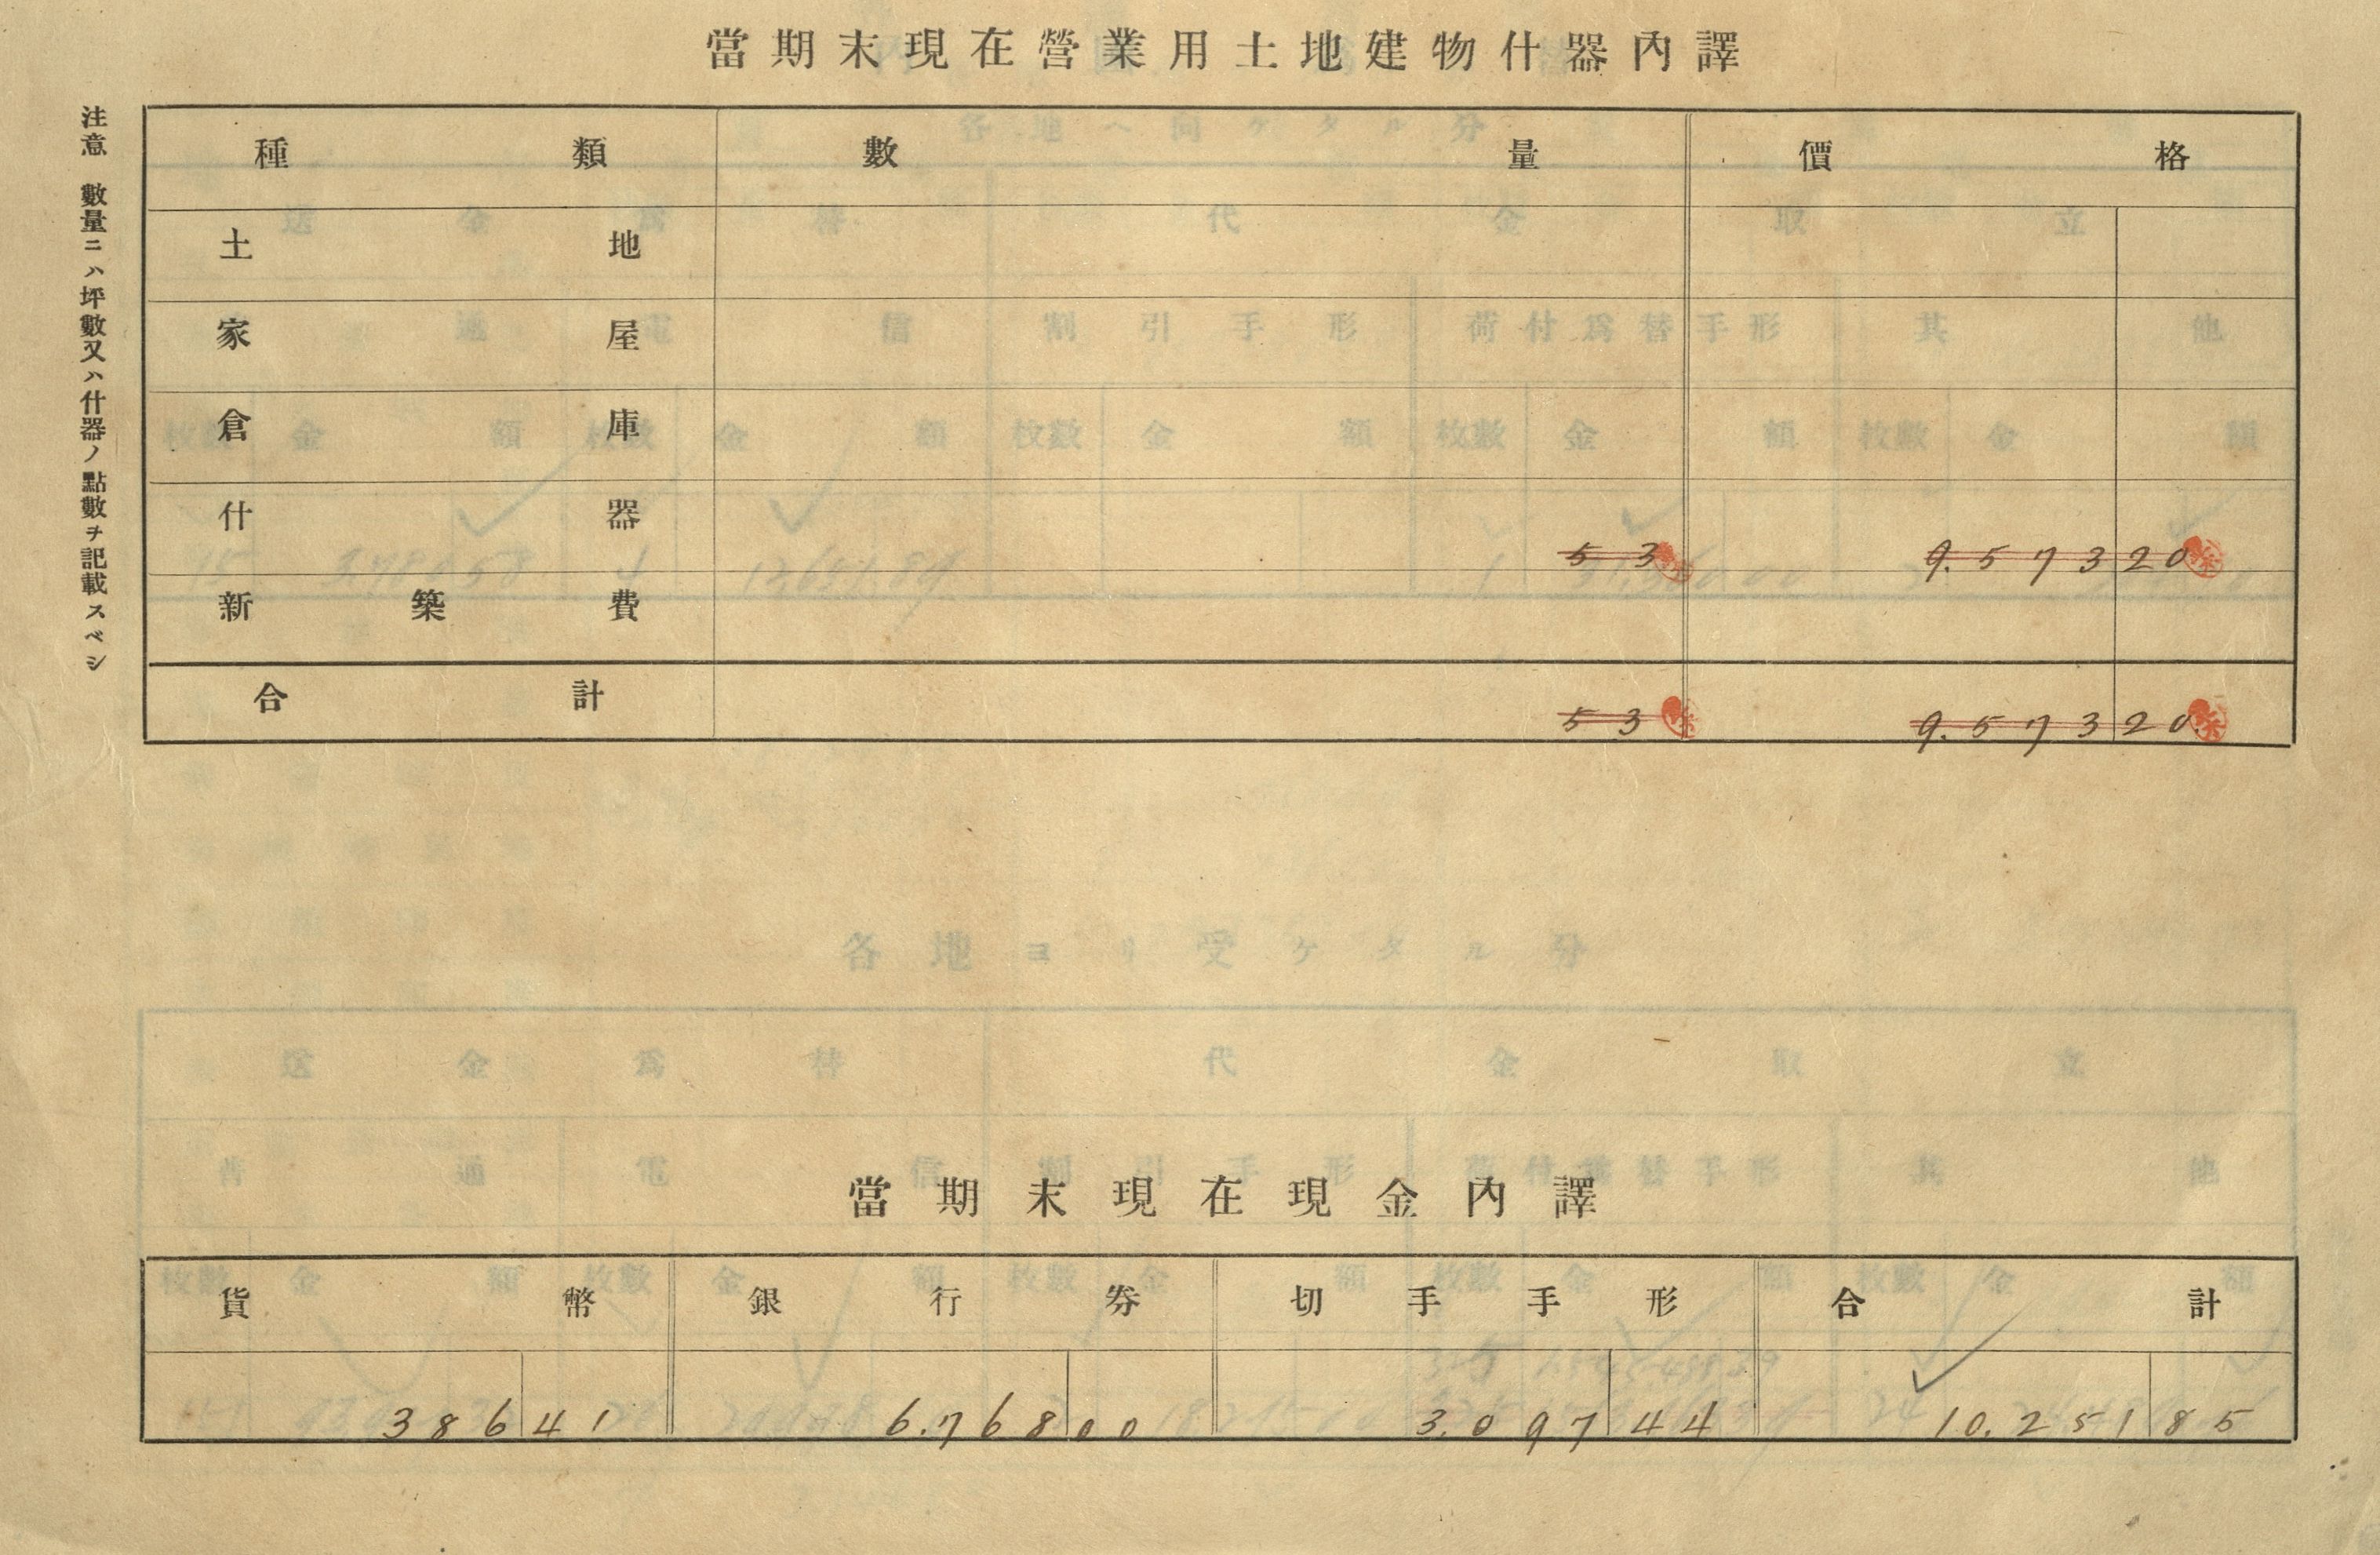 當期末現在營業用土地建物什器內譯
注意 數量ニハ坪數又ハ什器ノ點數ヲ記載スベシ
種類 數量 價格
土地
家屋
倉庫
什器 53 9.573 20
新築費
合計 53 9.573 20
當期末現在現金內譯
貨幣 銀行券 切手手形 合計
386 41 6.768 00 3.097 44 10.251 85